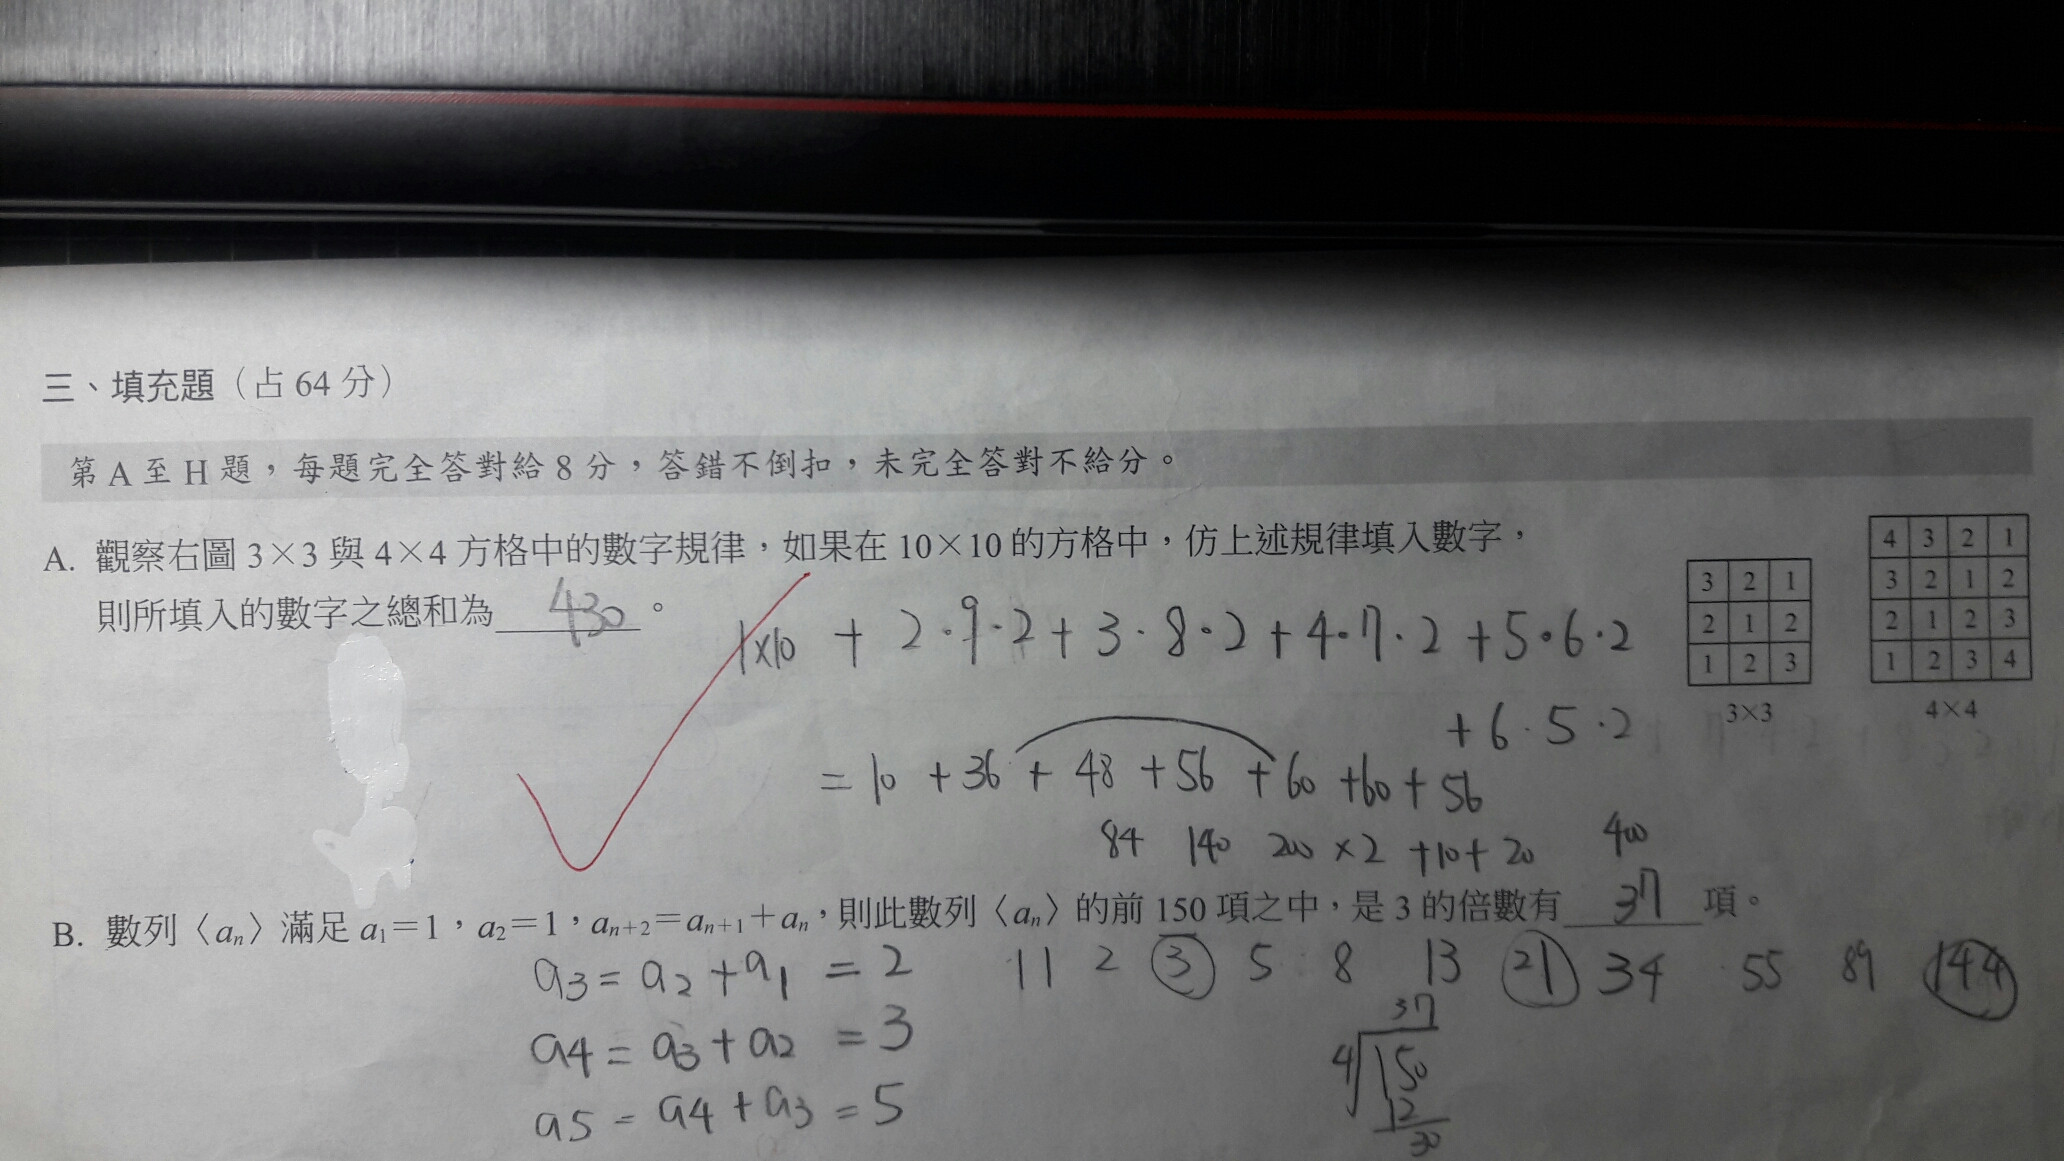 三、填充題（占 64 分）
第 A 至 H 題，每題完全答對給 8 分，答錯不倒扣，未完全答對不給分。
A. 觀察右圖 3×3 與 4×4 方格中的數字規律，如果在 10×10 的方格中，仿上述規律填入數字，
則所填入的數字之總和為 430 。
1×10 + 2·9·2 + 3·8·2 + 4·7·2 + 5·6·2
+ 6·5·2
= 10 + 36 + 48 + 56 + 60 + 60 + 56
84 140 200 ×2 +10+ 20 400
3 2 1
2 1 2
1 2 3
3×3
4 3 2 1
3 2 1 2
2 1 2 3
1 2 3 4
4×4
B. 數列〈an〉滿足 a1＝1，a2＝1，an+2＝an+1＋an，則此數列〈an〉的前 150 項之中，是 3 的倍數有 37 項。
a3 = a2 + a1 = 2
a4 = a3 + a2 = 3
a5 = a4 + a3 = 5
1 1 2 3 5 8 13 21 34 55 89 144
37
4 150
12
30